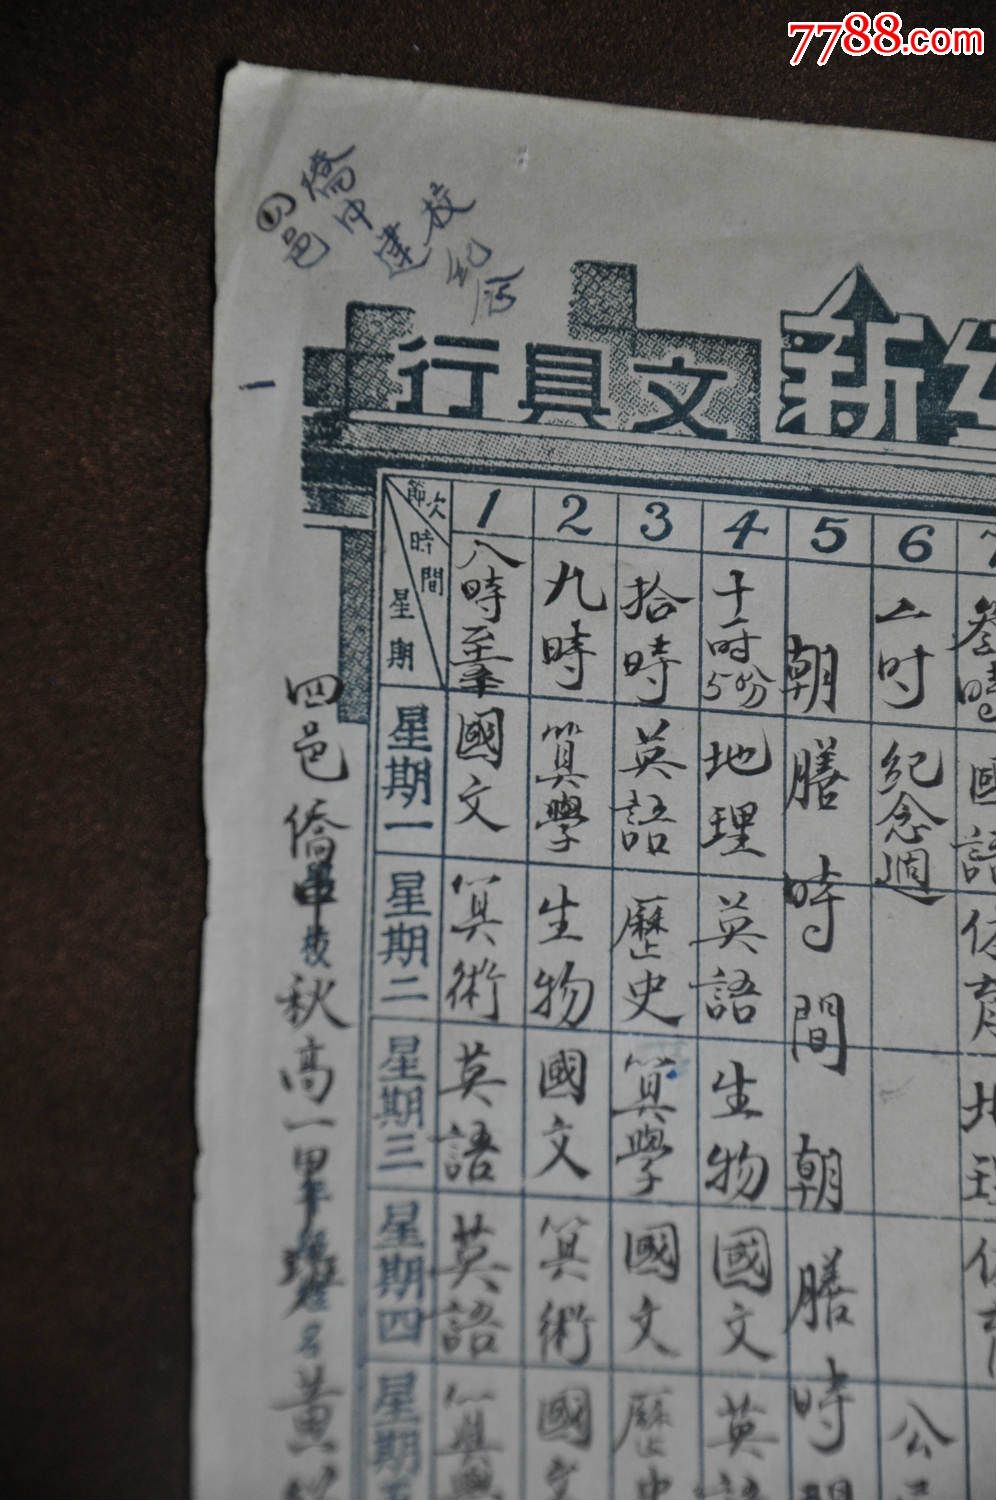 7788.com
四邑僑中建校紀
行具文新
節次
時間
星期
1 2 3 4 5 6 7
八時至
九時
拾時
十一時5份
朝膳時間
二时
叁時
星期一
國文
算學
英語
地理
紀念週
國語
星期二
算術
生物
歷史
英語
体育
星期三
英語
國文
算學
生物
朝膳時間
地理
星期四
英語
算術
國文
國文
体育
星期
算學
國文
歷史
英語
公
四邑僑中校
秋高一
名黃